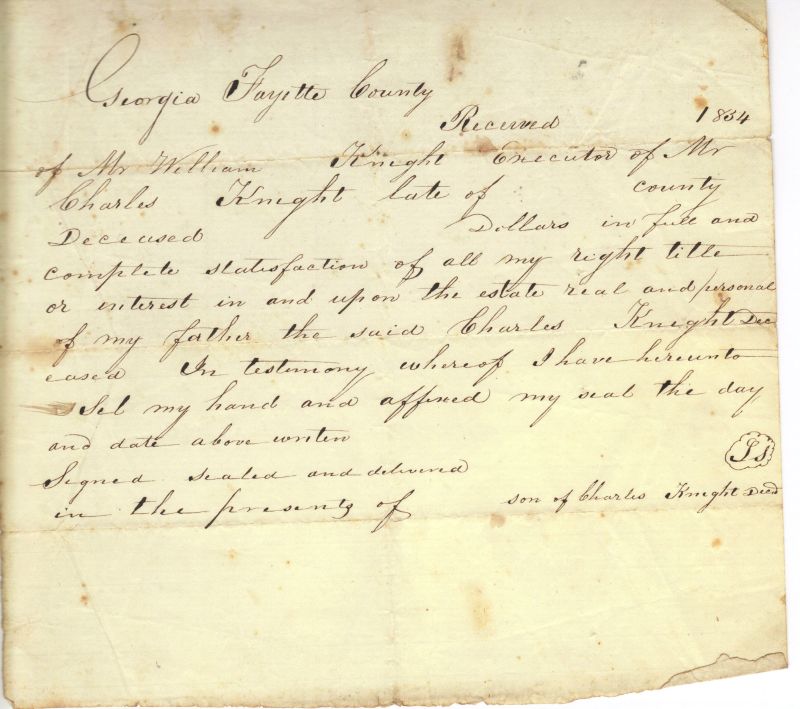 Georgia Fayette County
Received 1834
of Mr William Knight Executor of Mr
Charles Knight late of county
Deceased Dollars in full and
complete statisfaction of all my right title
or interest in and upon the estate real and personal
of my father the said Charles Knight Dec
eased In testimony whereof I have hereunto
Set my hand and affixed my seal the day
and date above writen
Signed sealed and delivered
in the presents of son of Charles Knight Decd